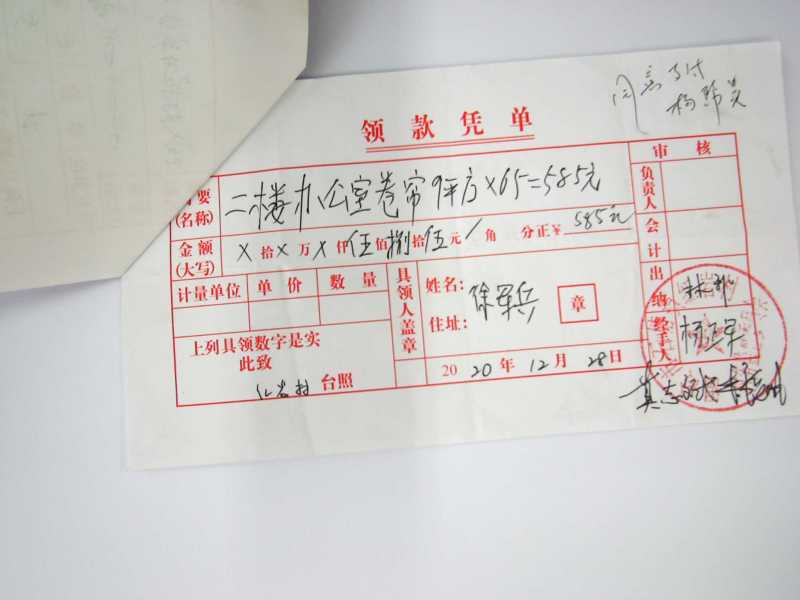 同意支付
领款凭单
审核
要
(名称)
二楼办公室卷帘 9平方×65=585元
负责人
金额
(大写)
×拾×万×仟伍佰捌拾伍元/角 分正¥585元
会计
计量单位 单价 数量
具领人盖章
姓名:
徐军兵
章
住址:
出纳
经手人
杨正军
上列具领数字是实
此致
台照
2020年12月28日